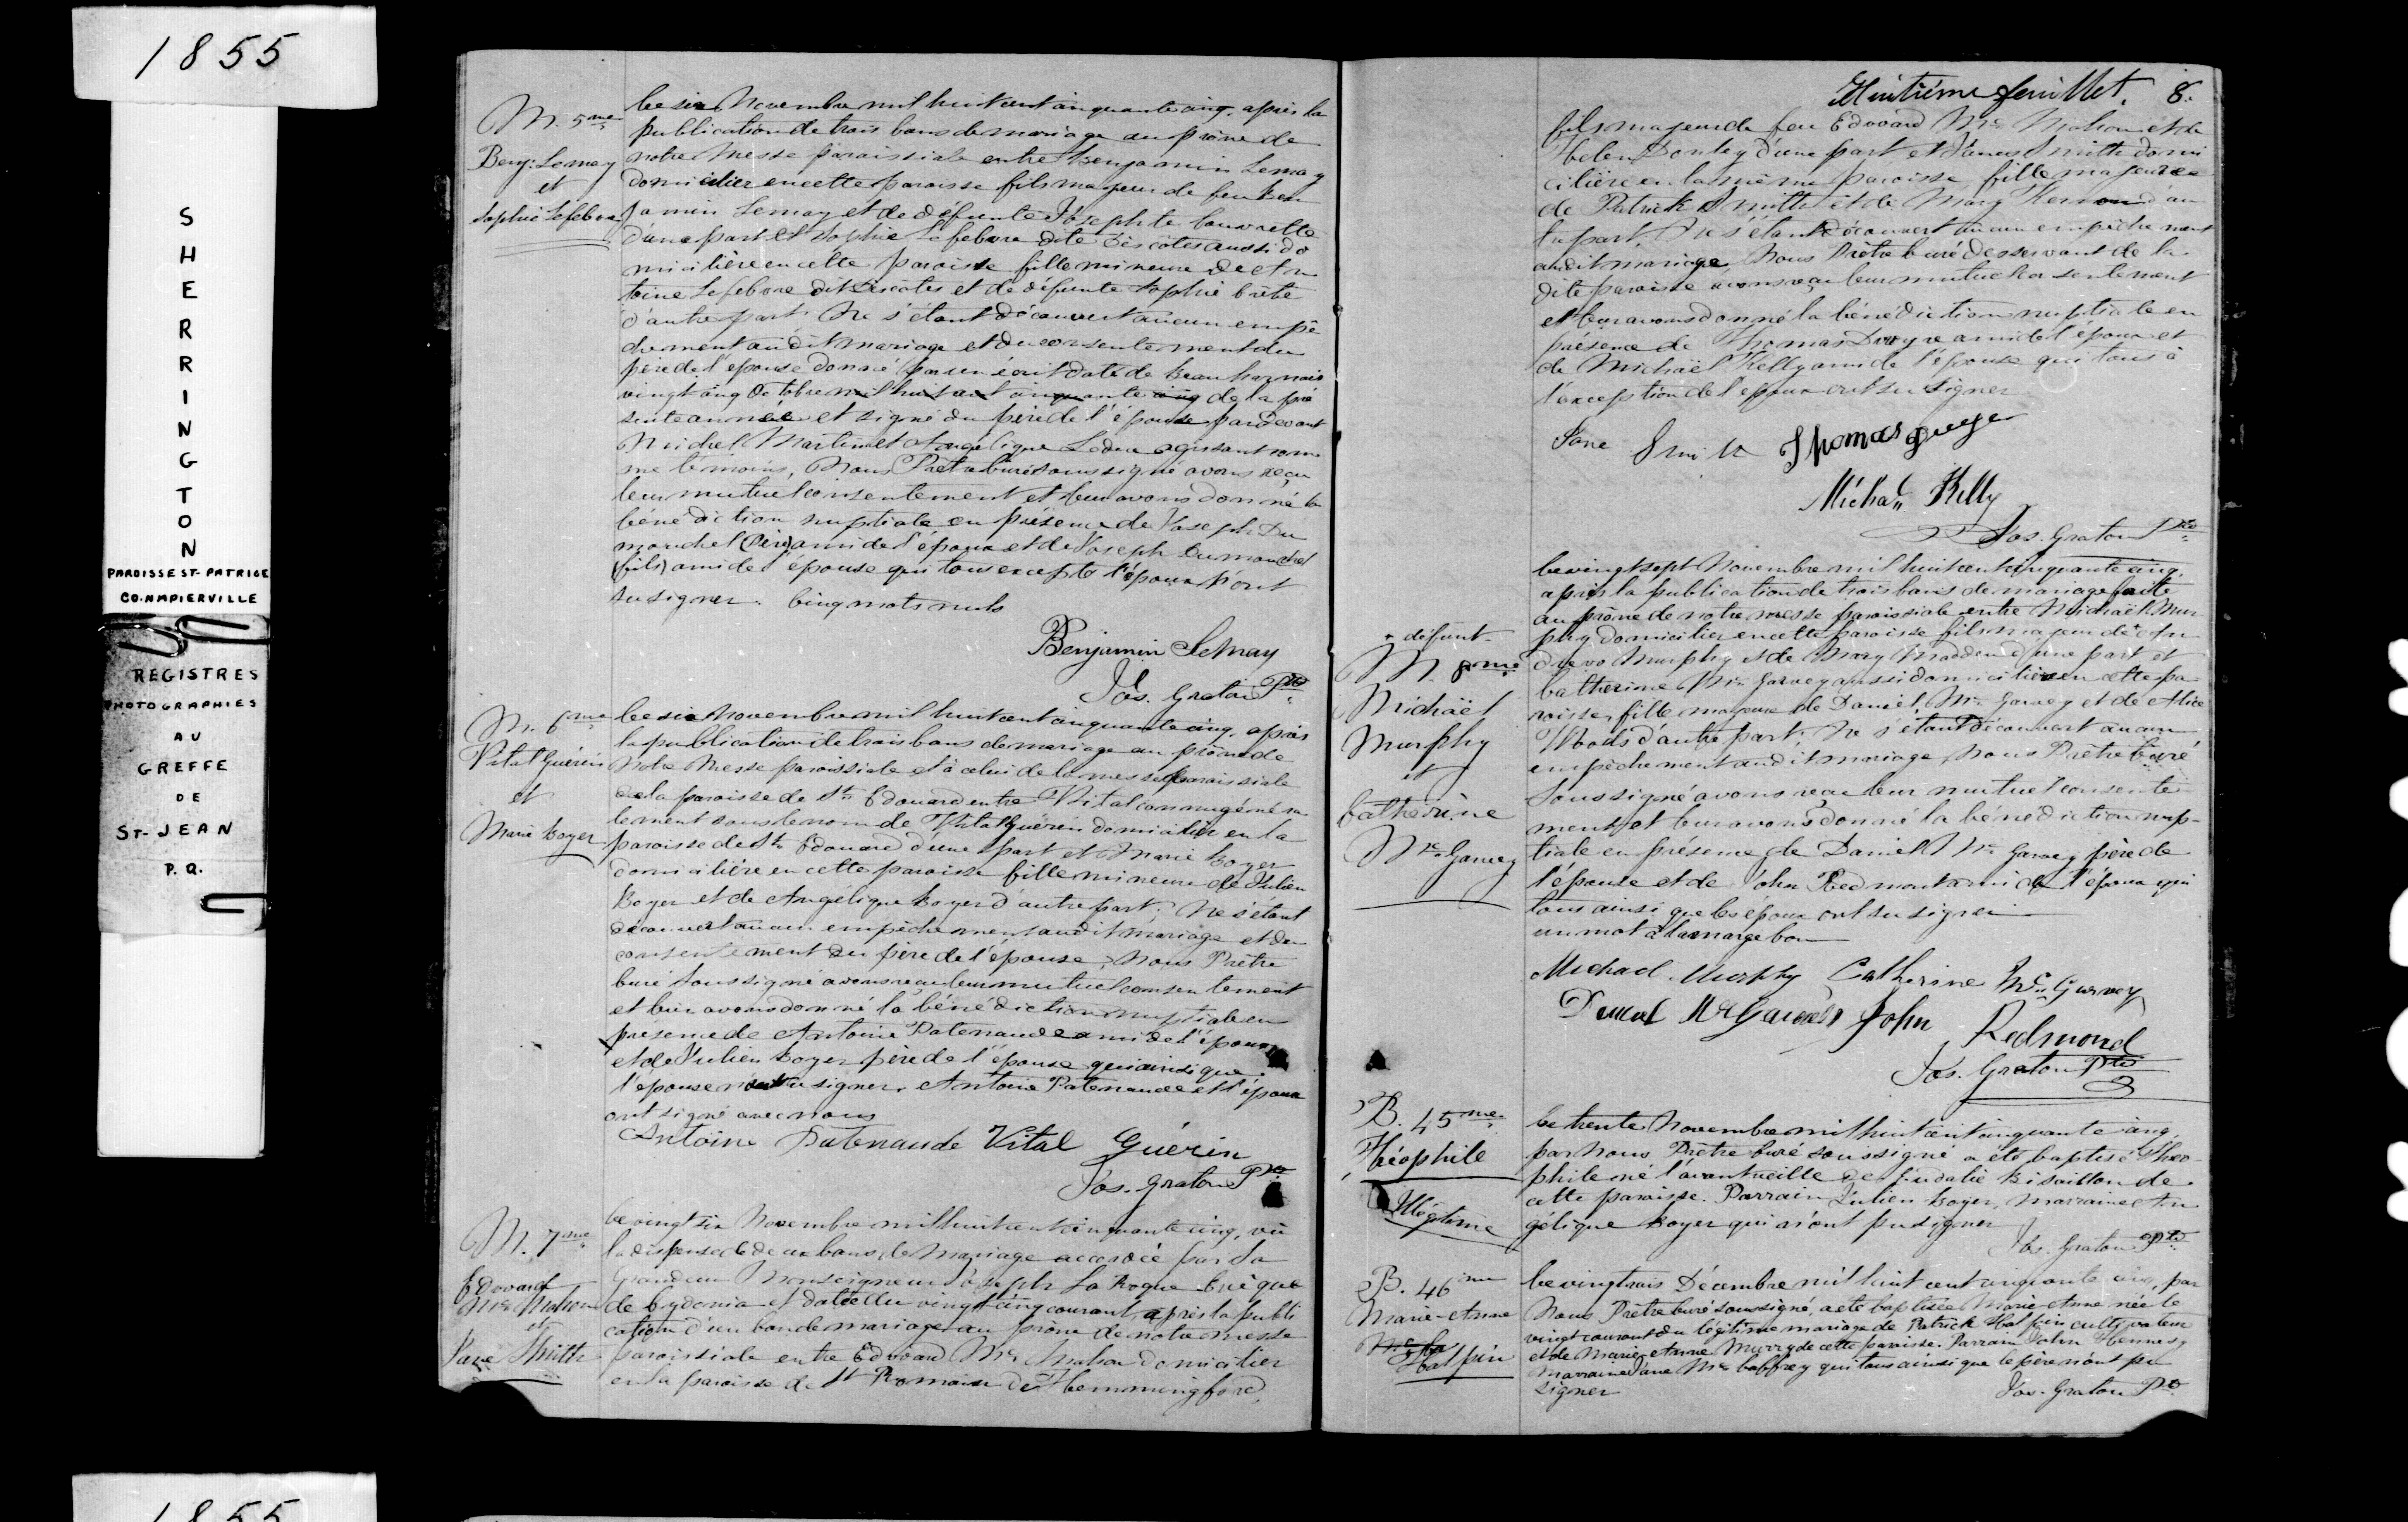 1855
SHERRINGTON
PAROISSE ST-PATRICE
CO. NAPIERVILLE
REGISTRES
PHOTOGRAPHIES
AU
GREFFE
DE
ST-JEAN
P.Q.
1855
M. 5me
Benj: Lemay
et
Sophie Lefebvre
Le six Novembre mil huit cent cinquante cinq, après la
publication de trois bans de mariage au prône de
notre Messe paroissiale entre Benjamin Lemay
domicilier en cette paroisse fils majeur de feu Ben
jamin Lemay et de défunte Josephte
d'une part et Sophie Lefebvre dite aussi do
micilière en cette paroisse fille mineure de An
toine Lefebvre dit et de défunte Sophie
d'autre part. Ne s'étant découvert aucun empê
chement au dit mariage et du consentement du
père de l'épouse donné par un écrit daté de Beauharnais
vingt cinq Octobre mil huit cent cinquante cinq de la pré
sente année et signé du père de l'épouse par devant
Michel Martin et Angélique Leduc agissant com
me témoins, Nous Prêtre Curé soussigné avons reçu
leur mutuel consentement et leur avons donné la
bénédiction nuptiale en présence de Joseph Du
mouchel (Père) ami de l'époux et de Joseph Dumouchel
(fils) ami de l'épouse qui tous excepté l'époux n'ont
su signer. Cinq mots nuls
Benjamin Lemay
Jos. Graton Ptre
M. 6me
Vital Guérin
et
Marie Boyer
Le six Novembre mil huit cent cinquante cinq, après
la publication de trois bans de mariage au prône de
Notre Messe paroissiale et à celui de la messe paroissiale
de la paroisse de St Edouard entre Vital connu géné ra
lement sous le nom de Vital Guérin domicilier en la
paroisse de St Edouard d'une part et Marie Boyer
domicilière en cette paroisse fille mineure de Julien
Boyer et de Angélique Boyer d'autre part. Ne s'étant
découvert aucun empêchement au dit mariage et du
consentement du père de l'épouse, Nous Prêtre
Curé Soussigné avons reçu leur mutuel consentement
et leur avons donné la bénédiction nuptiale en
présence de Antoine Patenaude ami de l'époux
et de Julien Boyer père de l'épouse qui ainsi que
l'épouse n'ont su signer. Antoine Patenaude et l'époux
ont signé avec nous
Antoine Patenaude Vital Guérin
Jos. Graton Ptre
M. 7me
Edouard
Mc Mahon
et
Jane Smith
Le vingt six Novembre mil huit cent cinquante cinq, vû
la dispense de deux bans de Mariage accordée par Sa
Grandeur Monseigneur Joseph La Roque Evêque
de Cydonia et datée du vingt cinq courant, après la publi
cation d'un ban de mariage au prône de notre messe
paroissiale entre Edouard Mc Mahon domicilier
en la paroisse de St Romain de Hemmingford,
Huitième feuillet. 8.
fils majeur de feu Edouard Mc Mahon et de
Helen Donley d'une part et Jane Smith domi
cilière en la même paroisse fille majeure
de Patrick Smith et de Mary d'au
tre part. Ne s'étant découvert aucun empêchement
au dit mariage, Nous Prêtre Curé Desservant de la
dite paroisse avons reçu leur mutuel consentement
et leur avons donné la bénédiction nuptiale en
présence de Thomas Dwyre ami de l'époux et
de Michaël Kelly ami de l'épouse qui tous à
l'exception de l'époux ont su signer
Jane Smith Thomas
Michael Kelly
Jos. Graton Ptre
+ défunt
M. 8me
Michaël
Murphy
et
Catherine
Mc Garvey
Le vingt sept Novembre mil huit cent cinquante cinq
après la publication de trois bans de mariage faite
au prône de notre messe paroissiale entre Michaël Mur
phy domicilier en cette paroisse fils majeur de + An
drew Murphy et de Mary Madden d'une part et
Catherine Mc Garvey aussi domicilière en cette pa
roisse, fille majeure de Daniel Mc Garvey et de Alice
Woods d'autre part. Ne s'étant découvert aucun
empêchement au dit mariage, Nous Prêtre Curé
Soussigné avons reçu leur mutuel consente
ment et leur avons donné la bénédiction nup-
tiale en présence de Daniel Mc Garvey père de
l'épouse et de John Redmont ami de l'époux qui
tous ainsi que les époux ont su signer
un mot à la marge bon
Michael Murphy Catherine Mc Garvey
John Redmond
Jos. Graton Ptre
B. 45me
Théophile
Illégitime
Le trente Novembre mil huit cent cinquante cinq
par Nous Prêtre Curé soussigné a été baptisé Théo-
phile né l'avant veille de Eudalie Bisaillon de
cette paroisse. Parrain Julien Boyer, Marraine An
gélique Boyer qui n'ont pu signer
Jos. Graton Ptre
B. 46me
Marie-Anne
Halpin
Le vingt trois Décembre mil huit cent cinquante cinq, par
Nous Prêtre Curé soussigné, a été baptisée Marie-Anne née le
vingt courant du légitime mariage de Patrick Halpin cultivateur
et de Marie-Anne Murry de cette paroisse. Parrain John Hennesy
Marraine Jane Mc Caffrey qui tous ainsi que le père n'ont pu
signer
Jos. Graton Ptre